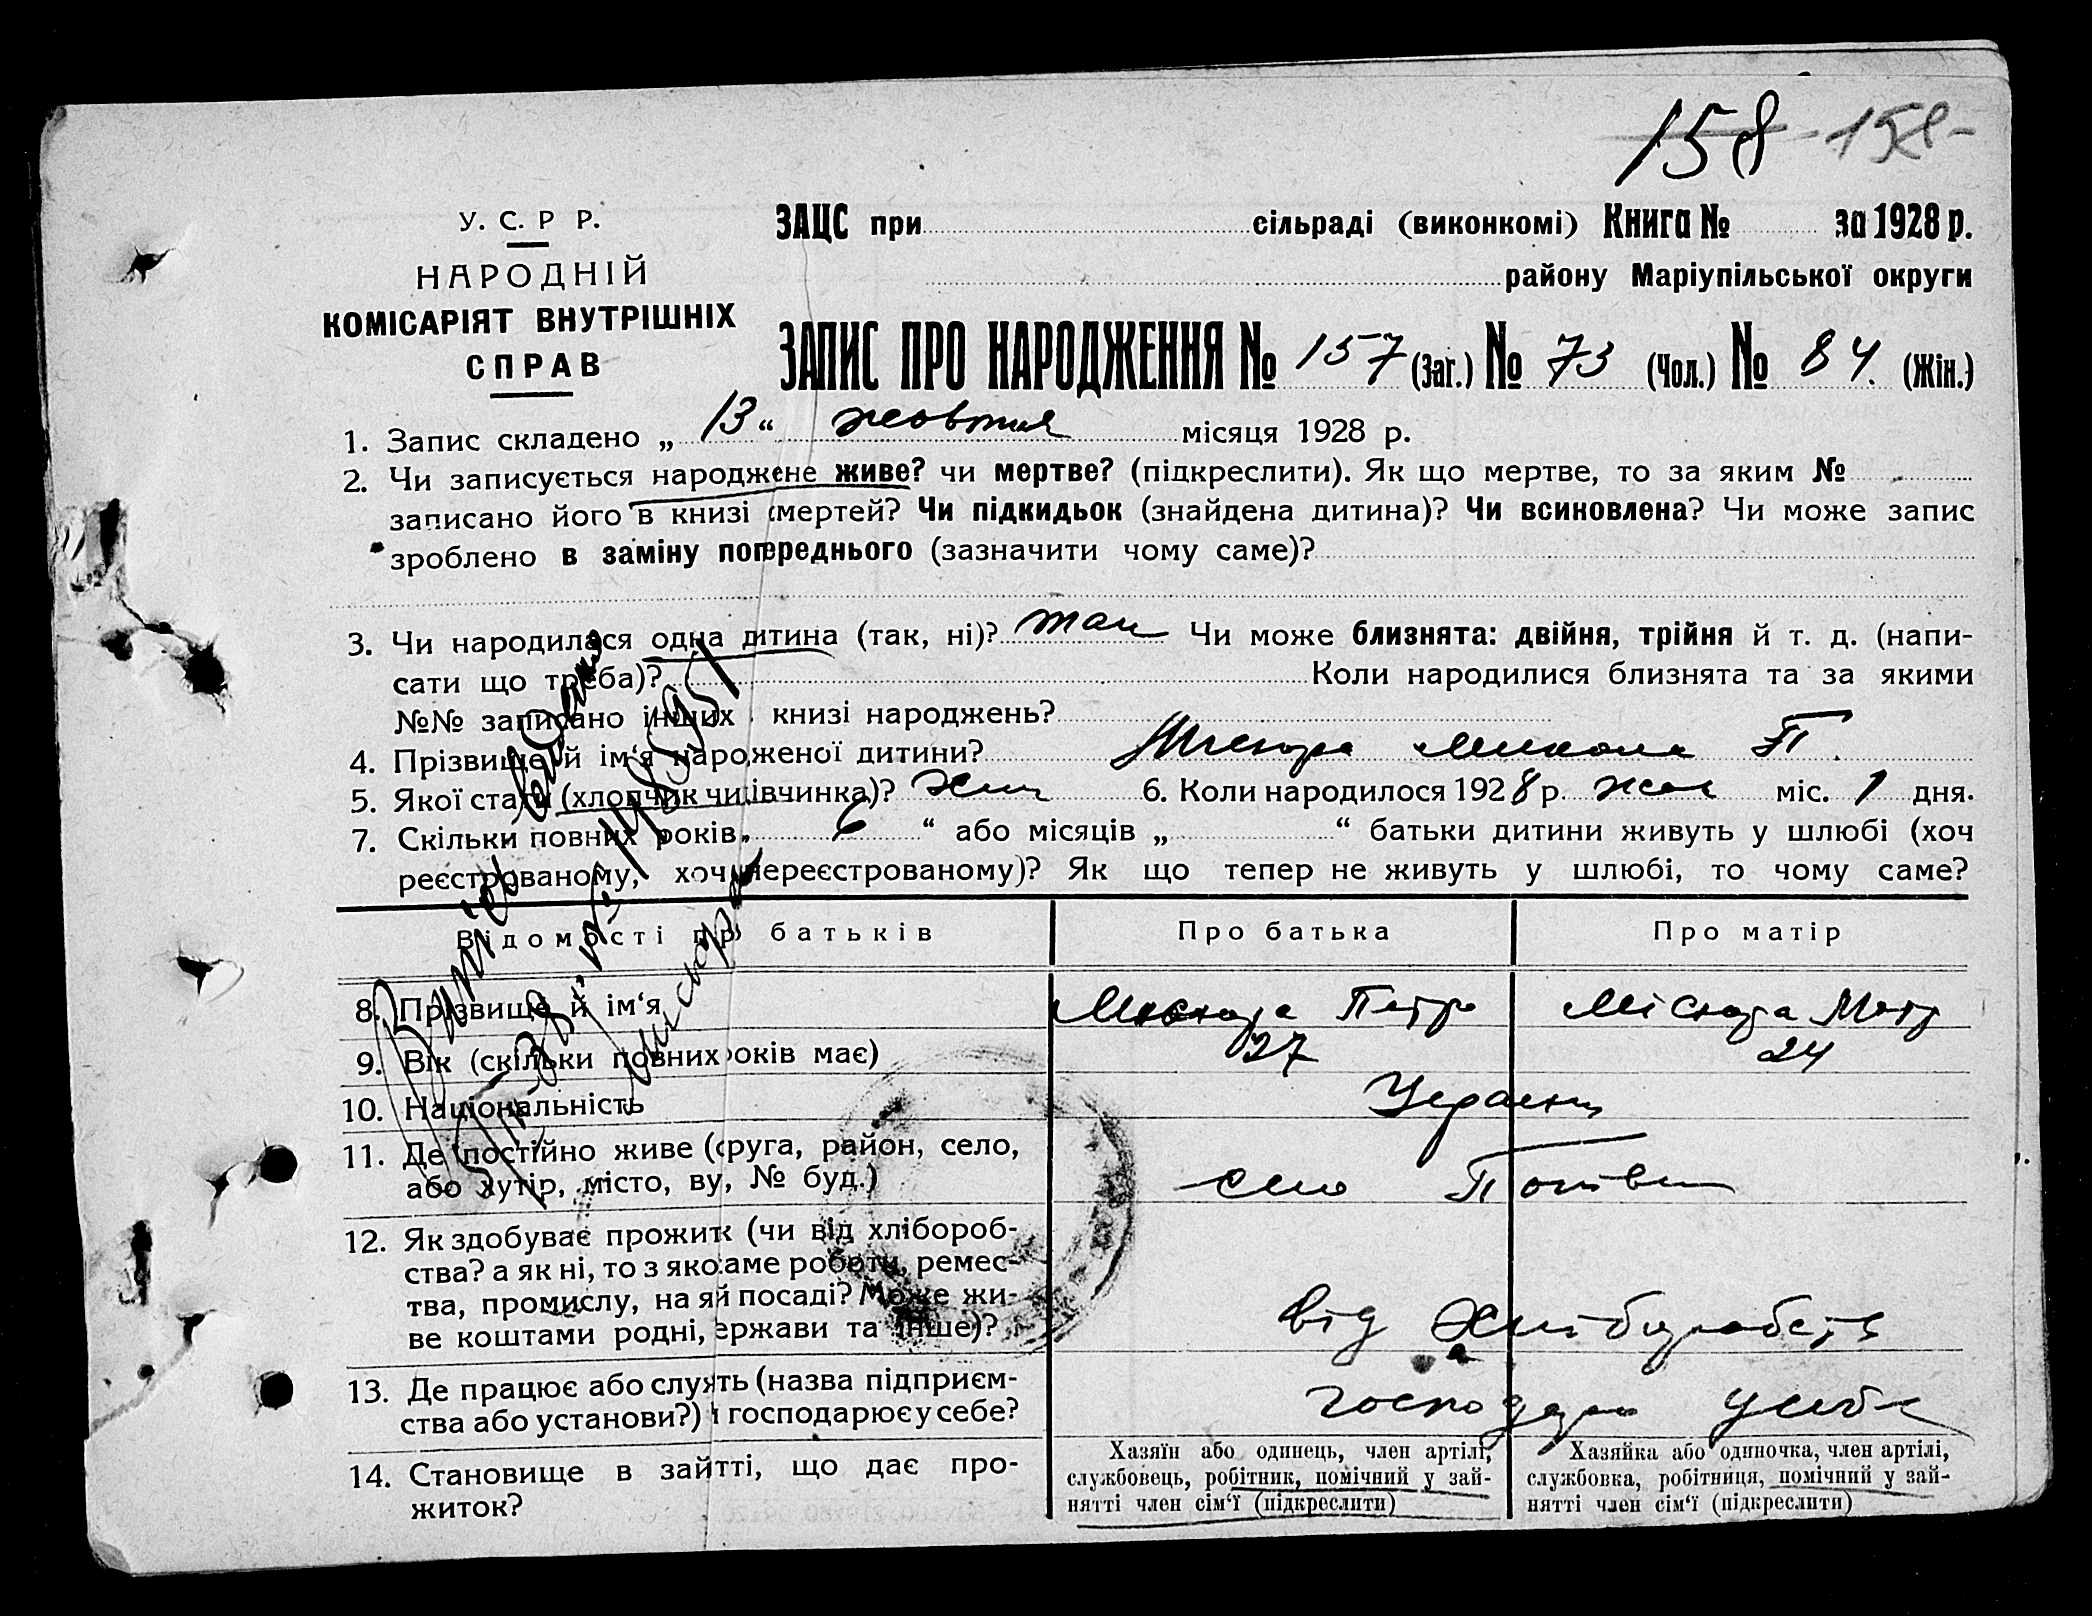 158 158
У. С. Р Р.
НАРОДНІЙ
КОМІСАРІЯТ ВНУТРІШНІХ
СПРАВ
ЗАЦС при сільраді (виконкомі) Книга № за 1928 р.
району Маріупільської округи
ЗАПИС ПРО НАРОДЖЕННЯ № 157 (Заг.) № 73 (Чол.) № 84. (Жін.)
1. Запис складено „ 13 “ жовтня місяця 1928 р.
2. Чи записується народжене живе? чи мертве? (підкреслити). Як що мертве, то за яким №
записано його в книзі смертей? Чи підкидьок (знайдена дитина)? Чи всиновлена? Чи може запис
зроблено в заміну попереднього (зазначити чому саме)?
3. Чи народилася одна дитина (так, ні)? так Чи може близнята: двійня, трійня й т. д. (напи-
сати що треба)? Коли народилися близнята та за якими
№№ записано інших книзі народжень?
4. Прізвище й ім‘я народженої дитини? Микола П.
5. Якої стати (хлопчик чи дівчинка)? 6. Коли народилося 1928 р. жов міс. 1 дня.
7. Скільки повних років „ 6 “ або місяців „ “ батьки дитини живуть у шлюбі (хоч
реєстрованому, хоч нереєстрованому)? Як що тепер не живуть у шлюбі, то чому саме?
Відомості про батьків Про батька Про матір
8. Прізвище й ім‘я Місюра Петро Місюра Мотр
9. Вік (скільки повних років має) 27 24
10. Національність Украєнц
11. Де постійно живе (округа, район, село,
або хутір, місто, ву, № буд.) село
12. Як здобуває прожиток (чи від хлібороб-
ства? а як ні, то з якосаме роботи, ремес-
тва, промислу, на якій посаді? Може жи-
ве коштами родні, держави та інше)? від хліборобств
13. Де працює або служить (назва підприєм-
ства або установи?) господарює у себе?
14. Становище в занятті, що дає про-
житок?
Хазяїн або одинець, член артілі,
службовець, робітник, помічний у зай-
нятті член сім‘ї (підкреслити)
Хазяйка або одиночка, член артілі,
службовка, робітниця, помічний у зай-
нятті член сім‘ї (підкреслити)